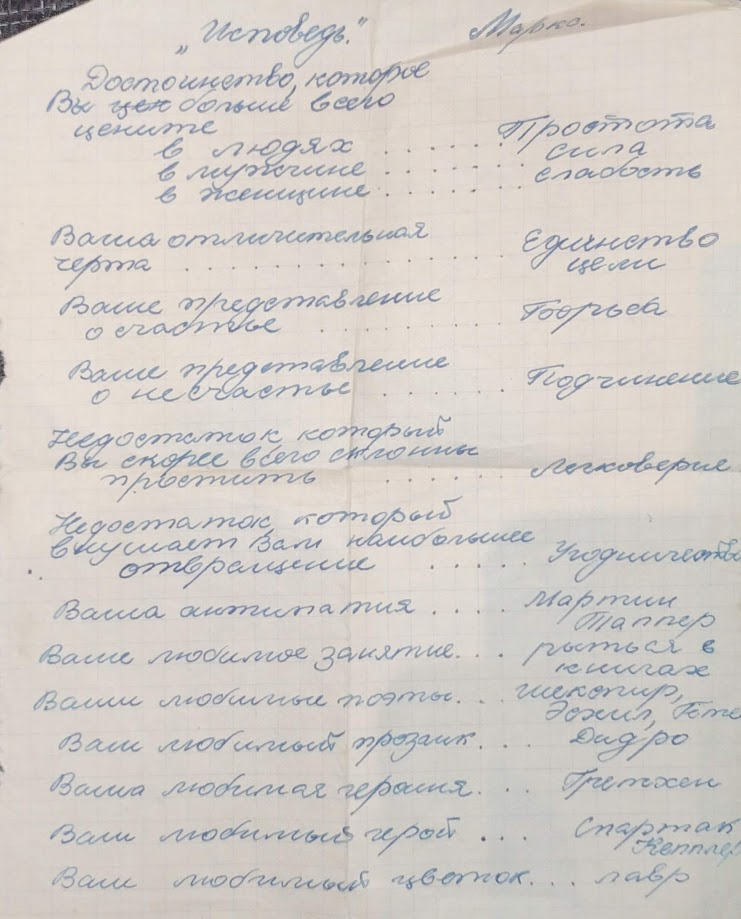 „Исповедь.“ Маркс.
Достоинство, которое
Вы цен больше всего
цените
в людях . . . . . . Простота
в мужчине . . . . . . сила
в женщине . . . . . . слабость
Ваша отличительная
черта . . . . . . . . . . . . Единство
цели
Ваше представление
о счастье . . . . . . . . Борьба
Ваше представление
о несчастье . . . . . . Подчинение
Недостаток который
Вы скорее всего склонны
простить . . . . . . Легковерие
Недостаток, который
внушает Вам наибольшее
отвращение . . . . . Угодничество
Ваша антипатия . . . . Мартин
Таппер
Ваше любимое занятие . . . рыться в
книгах
Ваши любимые поэты . . . Шекспир,
Эсхил, Гете
Ваш любимый прозаик . . . Дидро
Ваша любимая героиня . . . Гретхен
Ваш любимый герой . . . Спартак
Кеплер
Ваш любимый цветок . . . лавр